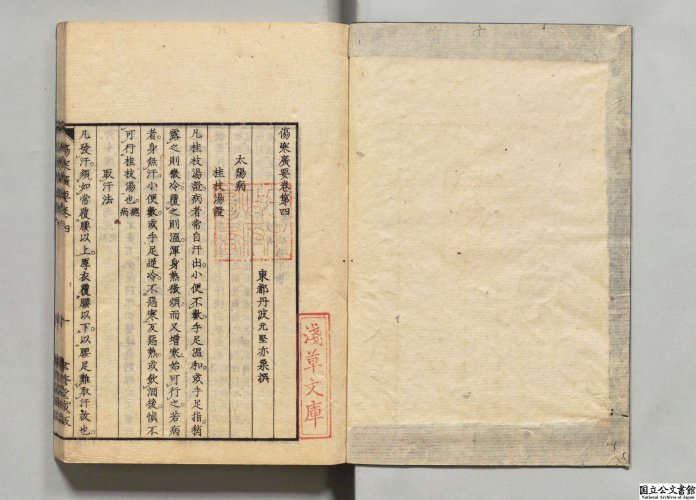 傷寒廣要卷第四
東都丹波元堅亦柔撰
太陽病
桂枝湯證
凡桂枝湯證病者常自汗出小便不數手足溫和或手足指稍
露之則微冷覆之則溫渾身熱微煩而又增寒始可行之若病
者身無汗小便數或手足逆冷不惡寒反惡熱或飲酒後愼不
可行桂枝湯也總病
取汗法
凡發汗須如常覆腰以上厚衣覆腰以下以腰足難取汗故也
傷寒廣要卷四
淺草文庫
国立公文書館
National Archives of Japan